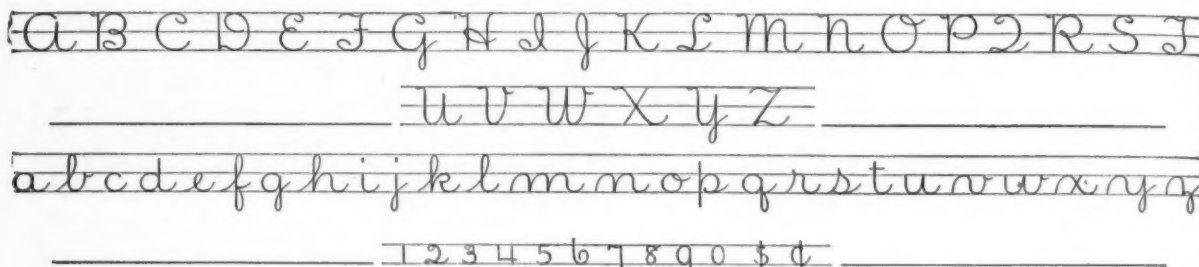 A B C D E F G H I J K L M N O P Q R S T
U V W X Y Z
a b c d e f g h i j k l m n o p q r s t u v w x y z
1 2 3 4 5 6 7 8 9 0 $ ¢